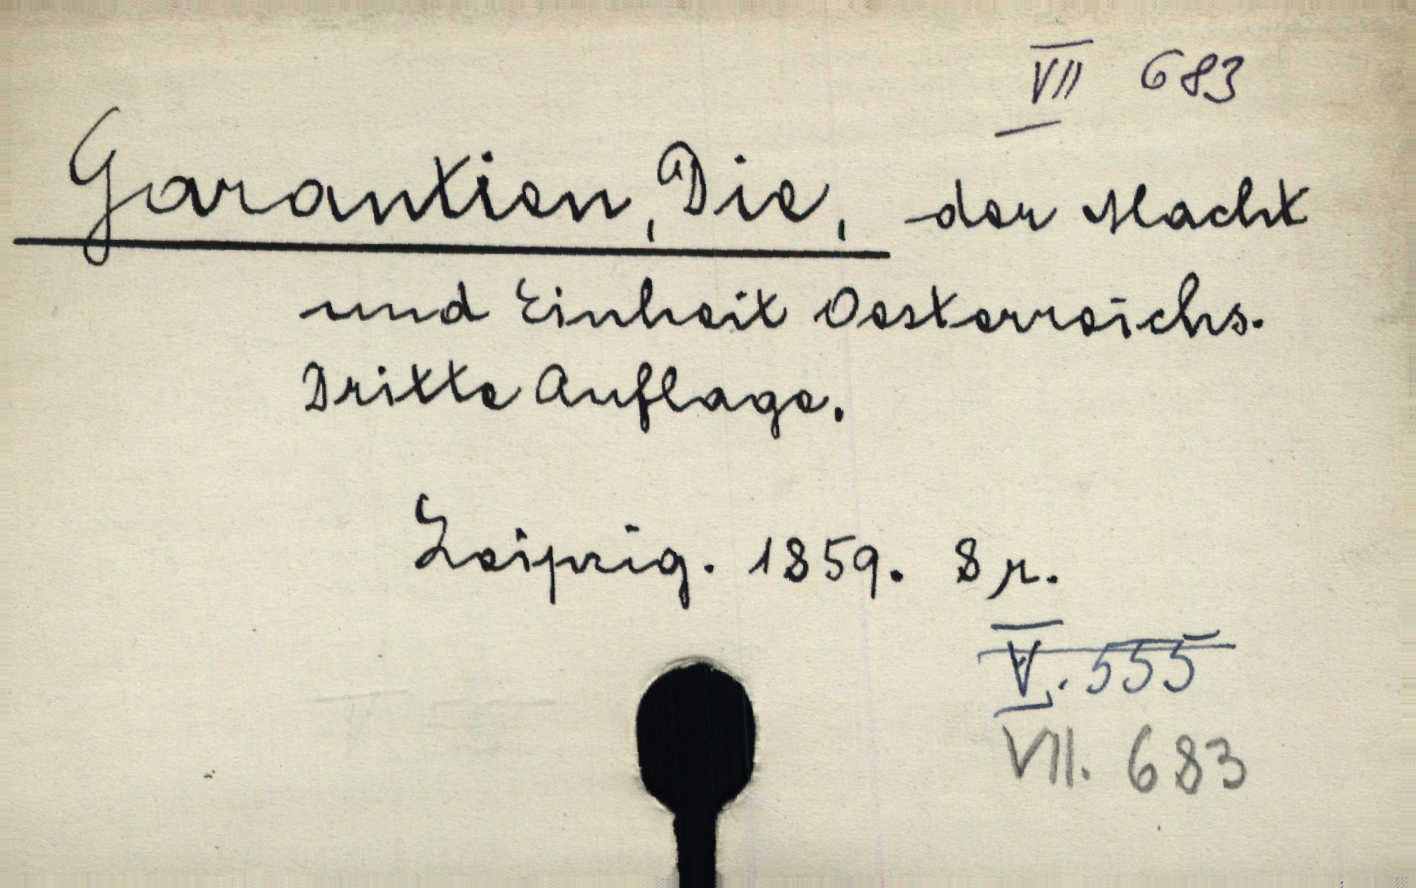 VII 683
Garantien, Die, der Macht
und Einheit Oesterreichs.
Dritte Auflage.
Leipzig. 1859. 8 r.
V. 555
VII. 683